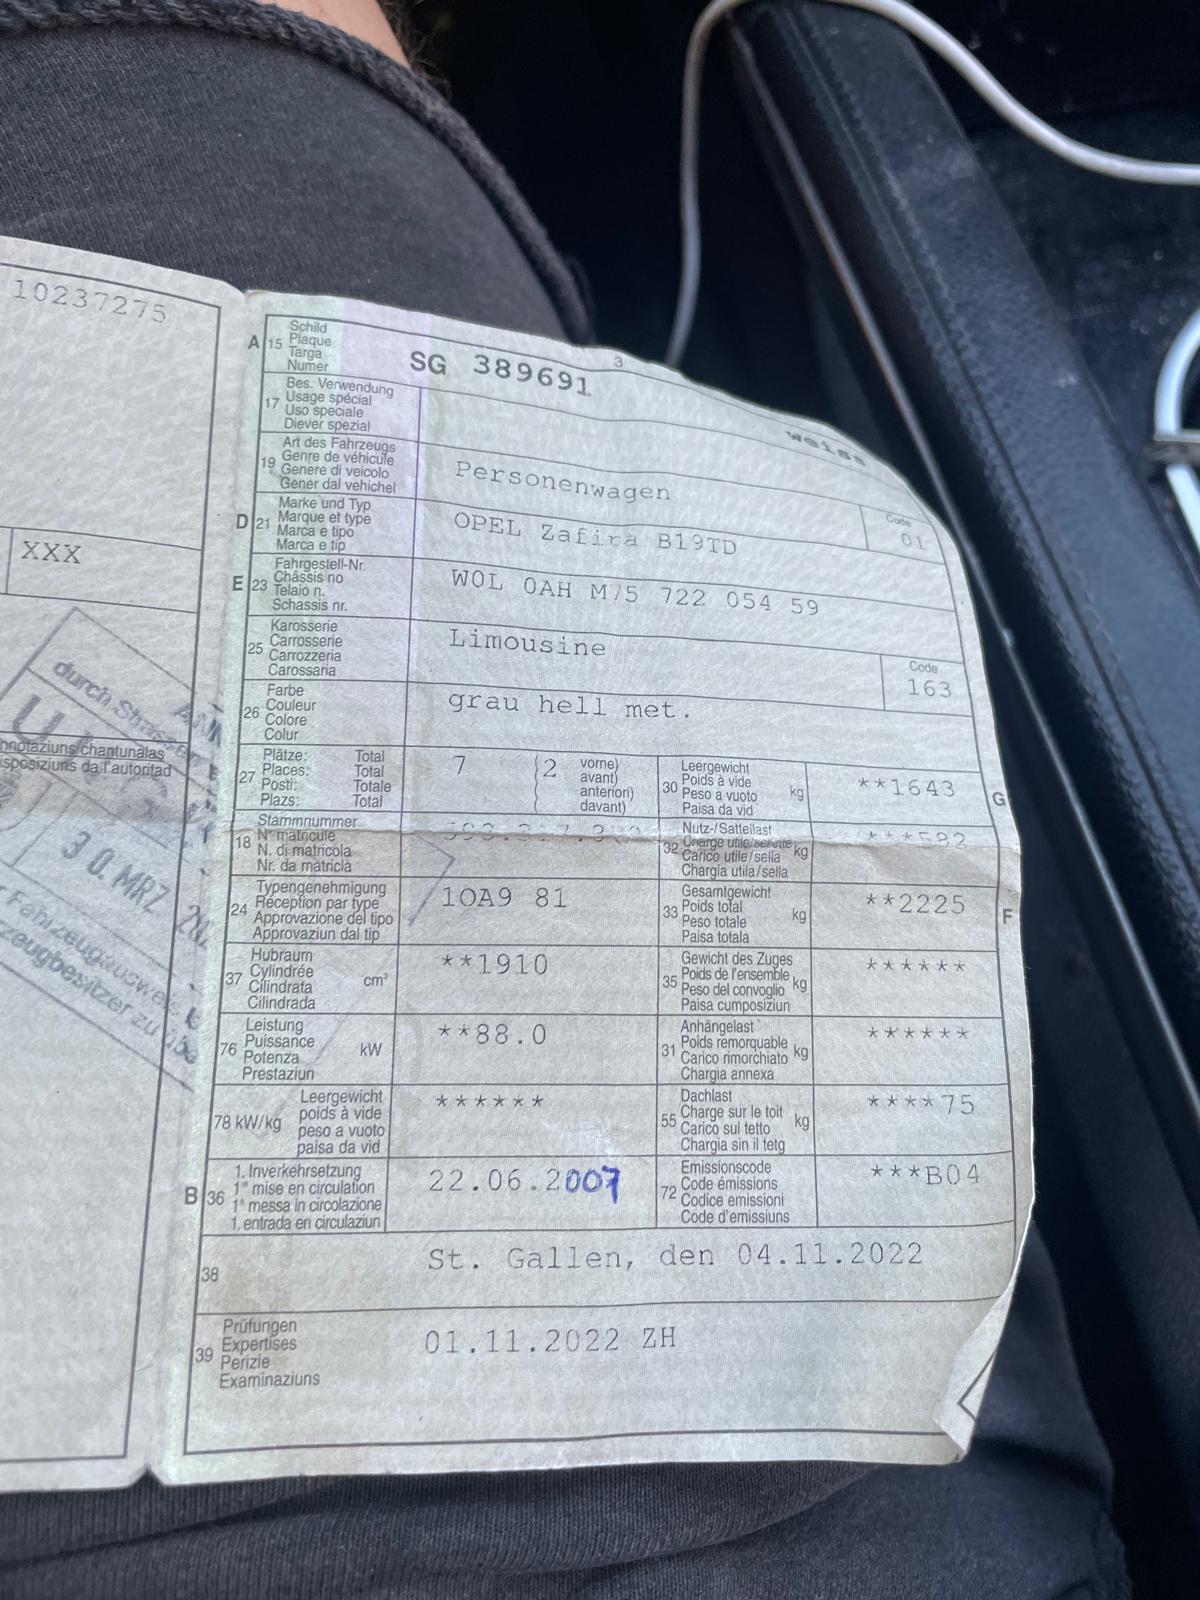 10237275
XXX
durch Strassen
nnotaziuns chantunalas
sposiziuns da l'autoritad
30. MRZ
Fahrzeugausweis
zeugbesitzer zu übe
3
A 15 Schild
Plaque
Targa
Numer
SG 389691
weiss
17 Bes. Verwendung
Usage spécial
Uso speciale
Diever spezial
19 Art des Fahrzeugs
Genre de véhicule
Genere di veicolo
Gener dal vehichel
Personenwagen
Code
01
D 21 Marke und Typ
Marque et type
Marca e tipo
Marca e tip
OPEL Zafira B19TD
E 23 Fahrgestell-Nr.
Châssis no
Telaio n.
Schassis nr.
WOL OAH M75 722 054 59
25 Karosserie
Carrosserie
Carrozzeria
Carossaria
Limousine
Code
163
26 Farbe
Couleur
Colore
Colur
grau hell met.
27 Plätze: Total
Places: Total
Posti: Totale
Plazs: Total
7 (2 vorne)
avant)
anteriori)
davant)
30 Leergewicht
Poids à vide
Peso a vuoto
Paisa da vid
kg
**1643
G
18 Stammnummer
N° matricule
N. di matricola
Nr. da matricla
32 Nutz-/Sattellast
Charge utile/sellette
Carico utile/sella
Chargia utila/sella
kg
24 Typengenehmigung
Réception par type
Approvazione del tipo
Approvaziun dal tip
1OA9 81
33 Gesamtgewicht
Poids total
Peso totale
Paisa totala
kg
**2225
F
37 Hubraum
Cylindrée
Cilindrata
Cilindrada
cm³
**1910
35 Gewicht des Zuges
Poids de l'ensemble
Peso del convoglio
Paisa cumposiziun
kg
******
76 Leistung
Puissance
Potenza
Prestaziun
kW
**88.0
31 Anhängelast
Poids remorquable
Carico rimorchiato
Chargia annexa
kg
******
78 kW/kg Leergewicht
poids à vide
peso a vuoto
paisa da vid
******
55 Dachlast
Charge sur le toit
Carico sul tetto
Chargia sin il tetg
kg
****75
B 36 1. Inverkehrsetzung
1re mise en circulation
1a messa in circolazione
1. entrada en circulaziun
22.06.2007
72 Emissionscode
Code émissions
Codice emissioni
Code d'emissiuns
***B04
38
St. Gallen, den 04.11.2022
39 Prüfungen
Expertises
Perizie
Examinaziuns
01.11.2022 ZH